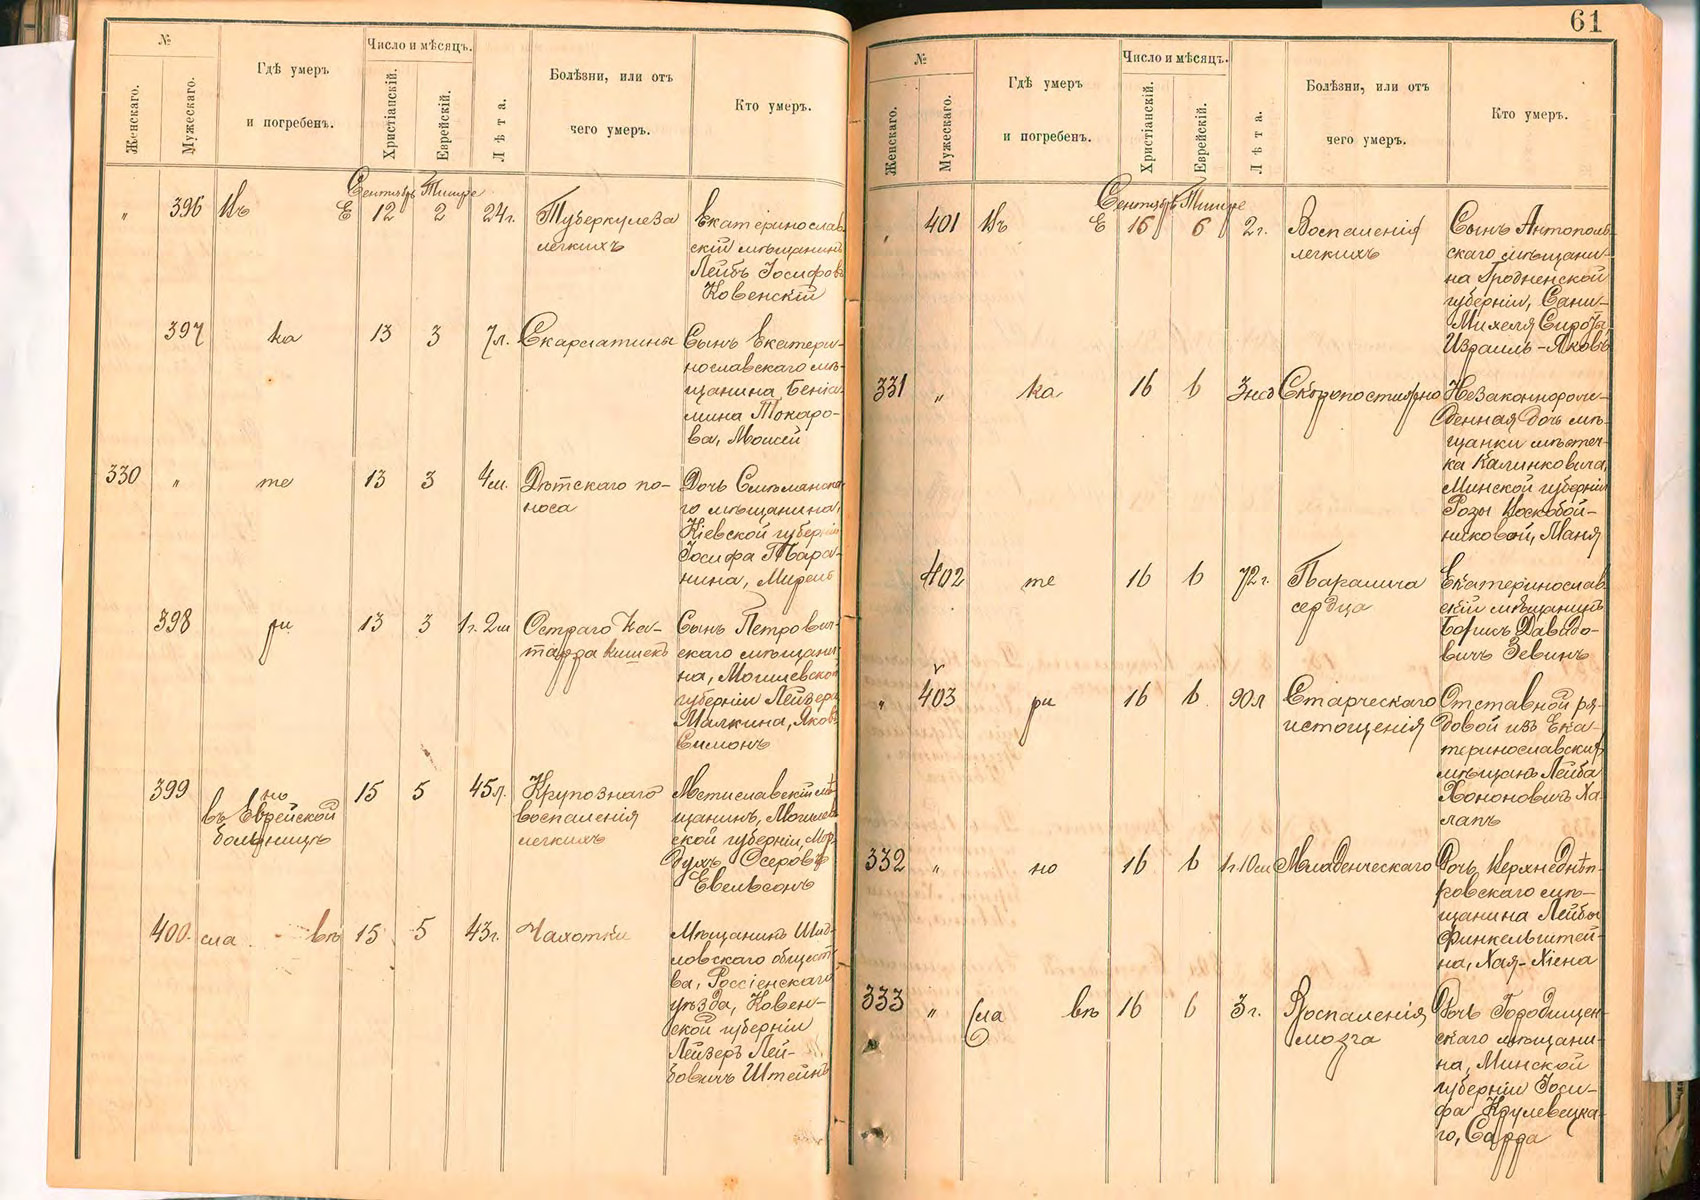 №
Женскаго.
Мужескаго.
Гдѣ умеръ
и погребенъ.
Число и мѣсяцъ.
Христіанскій.
Еврейскій.
Лѣта.
Болѣзни, или отъ
чего умеръ.
Кто умеръ.
Сентябрь Тишре
" 396 Въ Е 12 2 24 г. Туберкулеза
легкихъ
Екатеринослав
скій мѣщанинъ
Лейбъ Іосифовъ
Ковенскій
397 ка 13 3 7 л. Скарлатины
Сынъ Екатери-
нославскаго мѣ-
щанина Беніа-
мина Токаро-
ва, Моисей
330 " те 13 3 4 м. Дѣтскаго по-
носа
Дочь
го мѣщанина,
Кіевской губерніи
Іосифа Тара-
нина,
398 ри 13 3 1 г. 2 м Остраго Ка-
тарра кишекъ
Сынъ Петрович-
скаго мѣщани-
на, Могилевской
губерніи Лейзера
Малкина, Яковъ
Симонъ
399 но
въ Еврейской
больницѣ
15 5 45 л. Крупознаго
воспаленія
легкихъ
Мстиславскій мѣ
щанинъ, Могилев
ской губерніи, Мор
духъ Осеровъ
Евельсонъ
400. сла - въ 15 5 43 г. Чахотки
Мѣщанинъ Шид-
ловскаго общест
ва, Россіенскаго
уѣзда, Ковен-
ской губерніи
Лейзеръ Лей-
бовичъ Штейнъ
61
№
Женскаго.
Мужескаго.
Гдѣ умеръ
и погребенъ.
Число и мѣсяцъ.
Христіанскій.
Еврейскій.
Лѣта.
Болѣзни, или отъ
чего умеръ.
Кто умеръ.
Сентябрь Тишре
" 401 Въ Е 16 6 2 г. Воспаленія
легкихъ
Сынъ Антополь-
скаго мѣщани-
на Гродненской
губерніи,
Михеля Сироты,
Израиль-Яковъ
331 " ка 16 6 3 нед Скоропостижно
Незаконнорож-
денная дочь мѣ-
щанки мѣстеч-
ка Калинковича,
Минской губерніи
Розы Воскобой-
никовой, Маня
402 те 16 6 72 г. Паралича
сердца
Екатеринослав
скій мѣщанинъ
Борисъ Давидо-
вичъ Зевинъ
" 403 ри 16 6 90 л Старческаго
истощенія
Отставной ря-
довой изъ Ека-
теринославскихъ
мѣщанъ Лейба
Хононовичъ Ха
лапъ
332 " но 16 6 1 г. 10 м Младенческаго
Дочь Верхнеднѣп-
ровскаго мѣ-
щанина Лейбы
Финкельштей-
на, Хая-Хіена
333 " сла въ 16 6 3 г. Воспаленія
мозга
Дочь Городищен-
скаго мѣщани-
на, Минской
губерніи Іоси-
фа Крулевецка-
го, Сарра